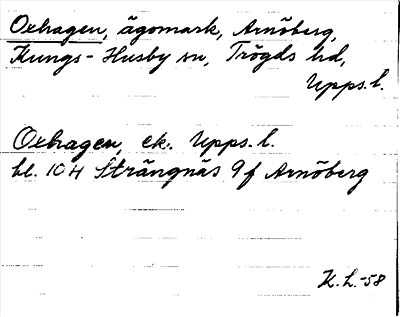 Oxhagen, ägomark, Arnöberg,
Kungs-Husby sn, Trögds hd,
Upps. l.
Oxhagen, ek. Upps. l.
bl. 10 H Strängnäs 9f Arnöberg
K. L. -58